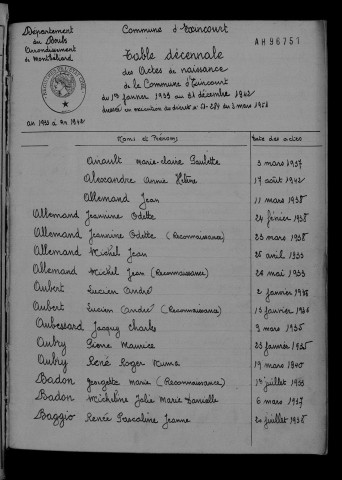 Département
du Doubs
Arrondissement
de Montbéliard
an 1933 à an 1942
Commune d'Exincourt
AH96751
Table décennale
des Actes de naissance
de la Commune d'Exincourt
du 1er janvier 1933 au 31 décembre 1942
dressé en exécution du décret n° 51-284 du 3 mars 1951
Noms et Prénoms Date des actes
Ainault Marie-Claire Paulette 3 mars 1937
Alexandre Annie Hélène 17 août 1942
Allemand Jean 11 mars 1938
Allemand Jeannine Odette 24 février 1938
Allemand Jeannine Odette (Reconnaissance) 23 mars 1938
Allemand Michel Jean 25 avril 1933
Allemand Michel Jean (Reconnaissance) 26 mai 1933
Aubert Lucien André 2 janvier 1936
Aubert Lucien André (Reconnaissance) 13 janvier 1936
Aubessard Jacquy Charles 9 mars 1935
Aubry Pierre Maurice 23 janvier 1935
Aubry René Roger Numa 19 mars 1940
Badon Georgette Marie (Reconnaissance) 1er juillet 1933
Badon Micheline Julie Marie Danielle 6 mars 1937
Baggio Renée Pascaline Jeanne 20 juillet 1938